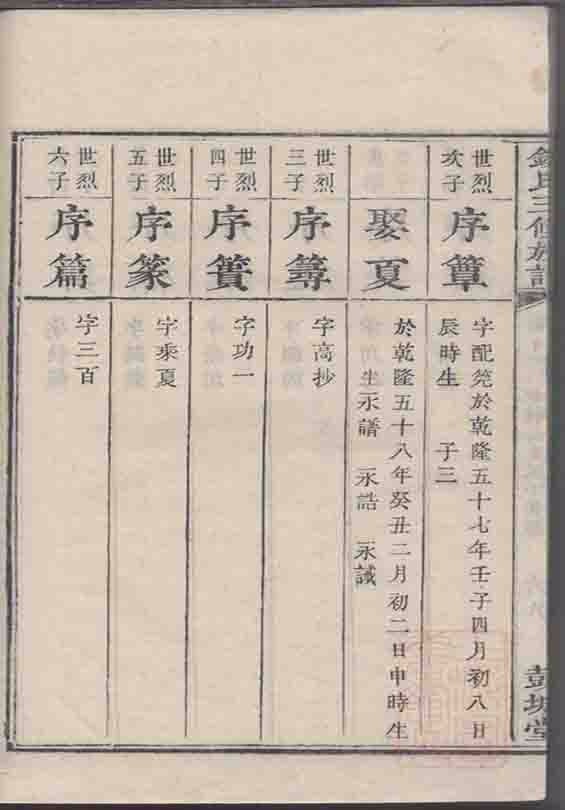 氏三修族譜
彭城堂
世烈
次子
序簟
字配筦於乾隆五十七年壬子四月初八日
辰時生　子三
娶夏
於乾隆五十八年癸丑二月初二日申時生
生永譜　永誥　永諴
世烈
三子
序籌
字高抄
世烈
四子
序簣
字功一
世烈
五子
序篆
字乘夏
世烈
六子
序篇
字三百